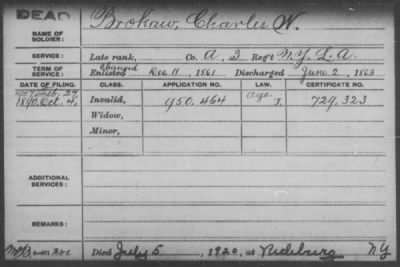 DEAD
NAME OF SOLDIER: Brokaw, Charles N.
SERVICE: Late rank, Co. A, 3 Reg't N.Y. L. A.
TERM OF SERVICE: Enlisted Dec 11, 1861 Discharged June 2, 1863
DATE OF FILING. CLASS. APPLICATION NO. LAW. CERTIFICATE NO.
1890 Oct. 4, Invalid, 950.464 age J. 729,323
Widow,
Minor,
ADDITIONAL SERVICES:
REMARKS:
Died July 5, 1920, at Richburg N.Y.